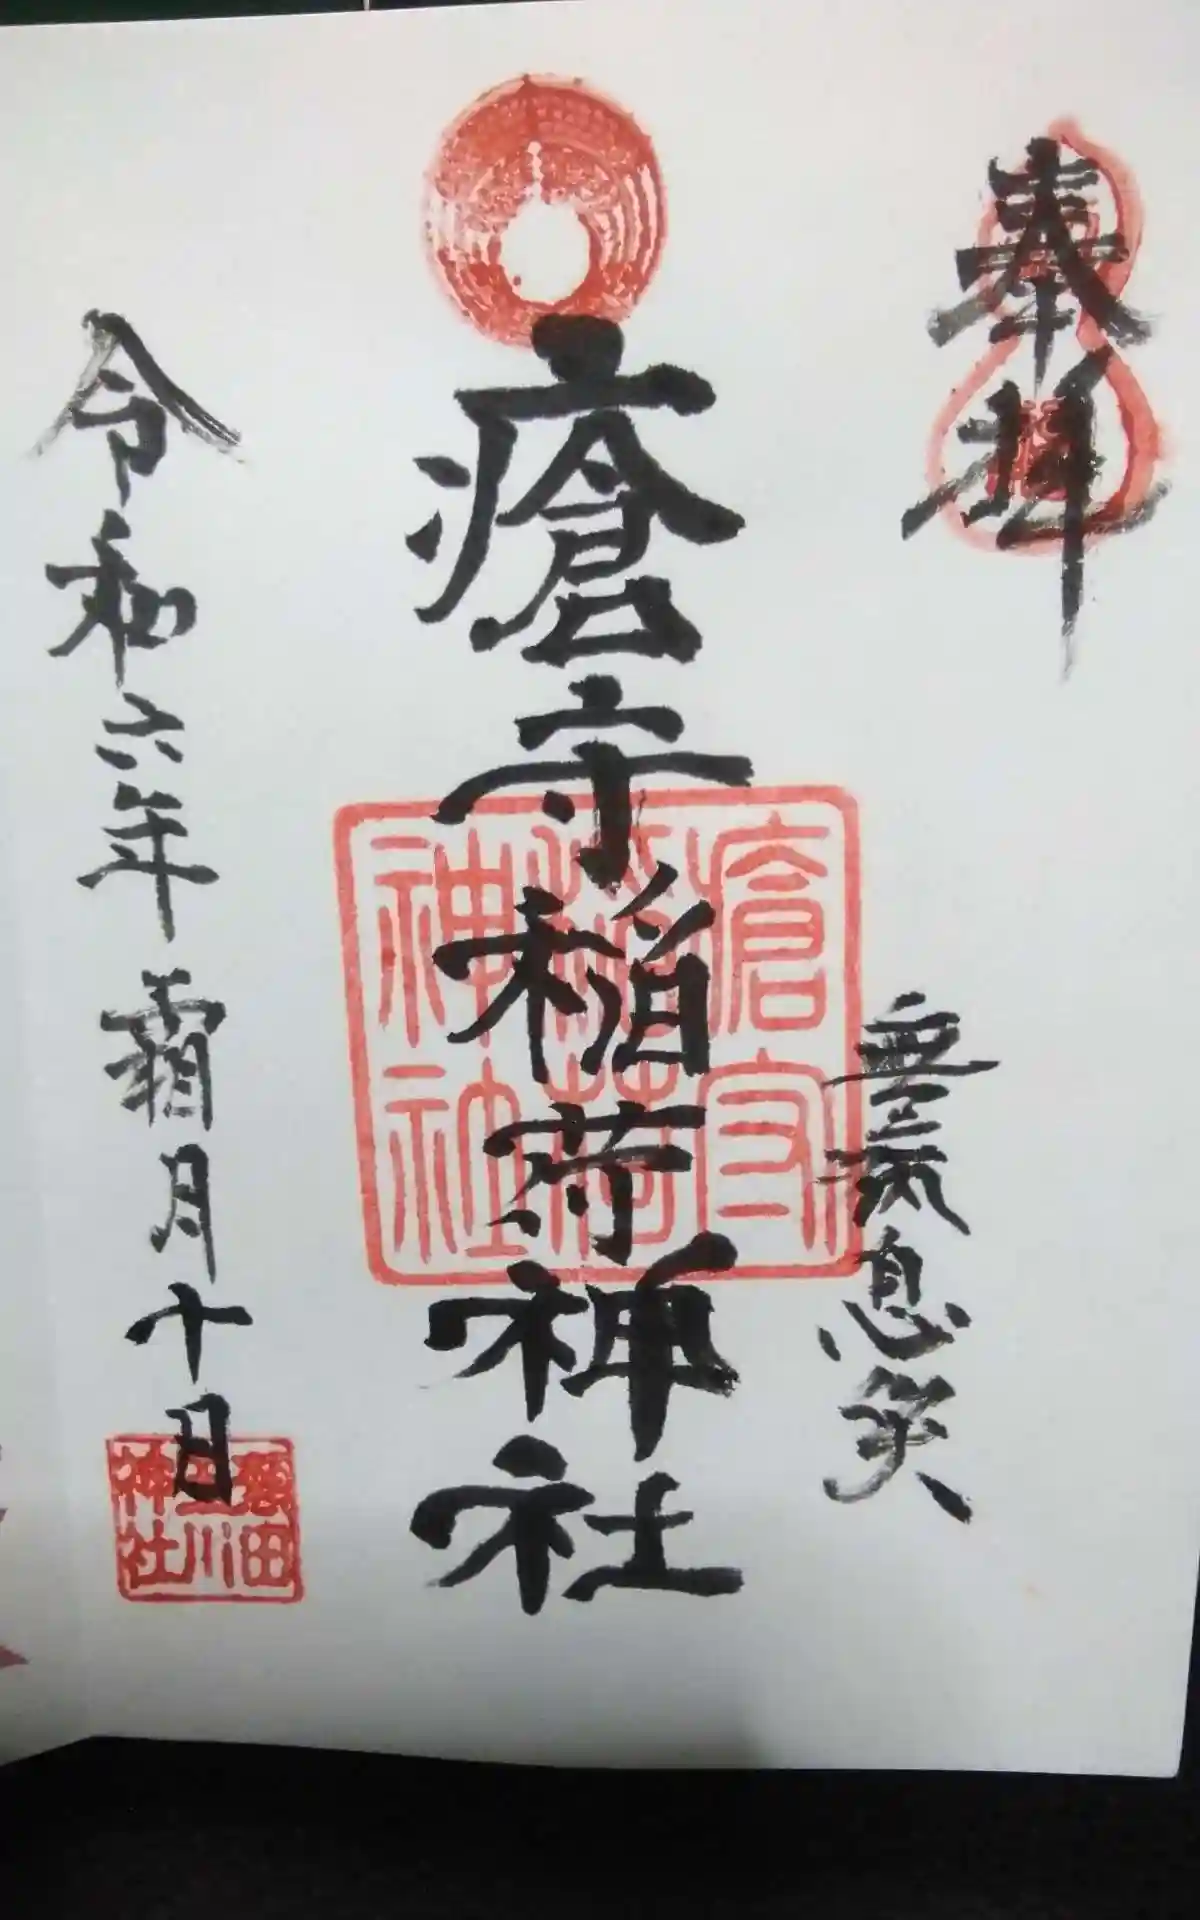 奉拝
無病息災
瘡守稲荷神社
瘡守
稲荷
神社
令和六年霜月十日
神社